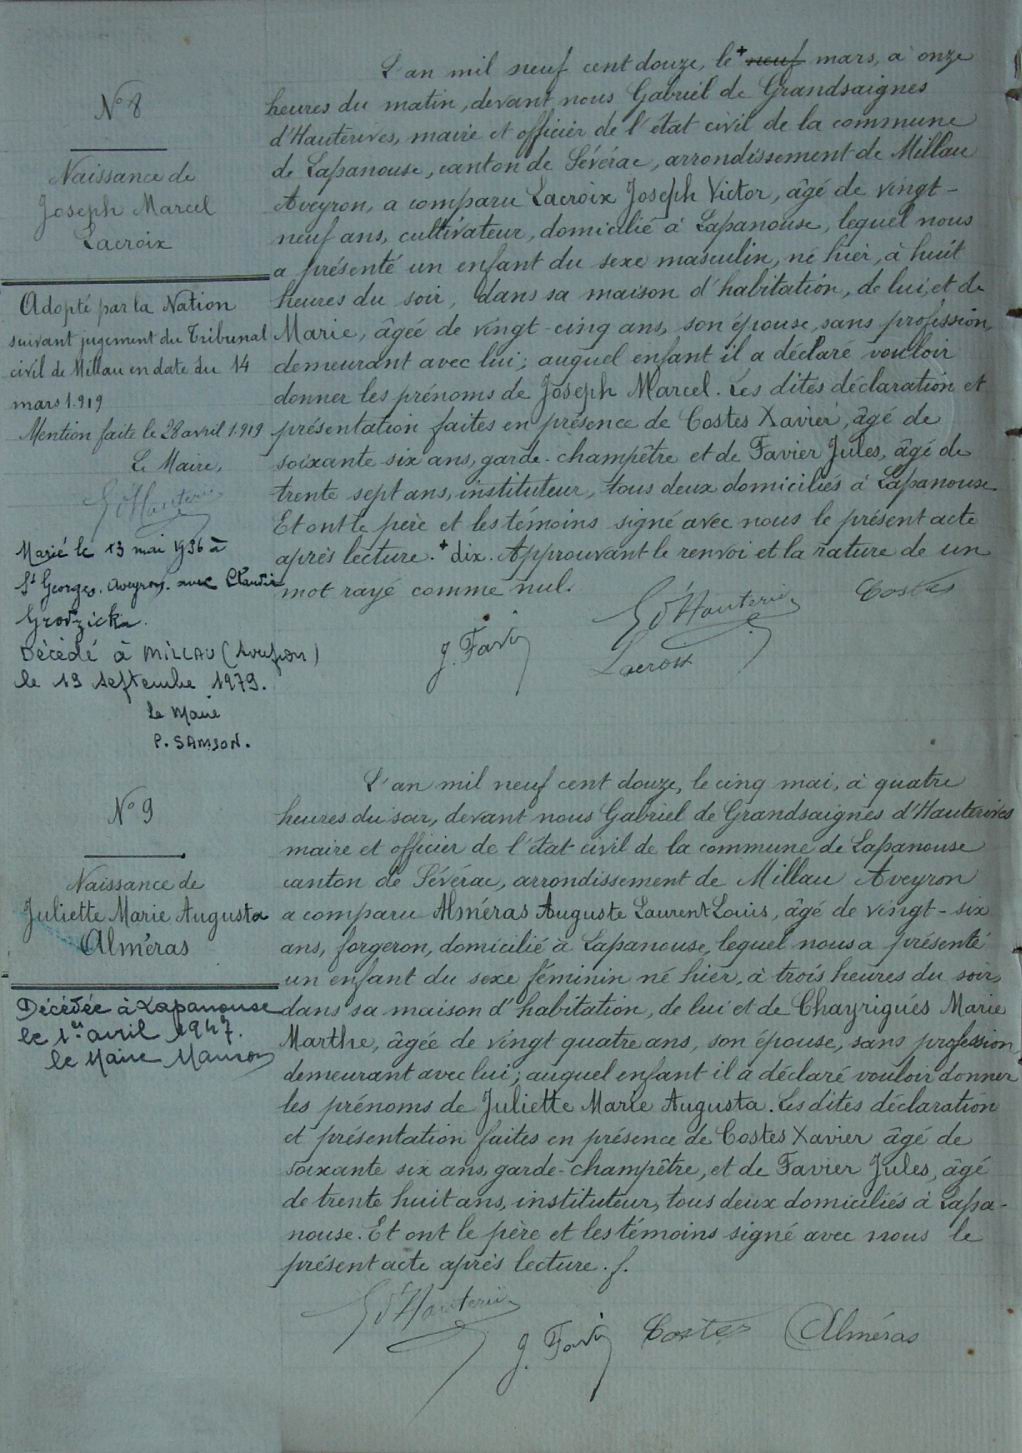 N° 8
Naissance de
Joseph Marcel
Lacroix
Adopté par la Nation
suivant jugement du Tribunal
civil de Millau en date du 14
mars 1.919
Mention faite le 28 avril 1.919
Le Maire,
G d'Hauterive
Marié le 13 mai 1936 à
St Georges. Aveyron. avec
Décédé à MILLAU (Aveyron)
le 19 septembre 1979.
le Maire
P. SAMSON.
L'an mil neuf cent douze, le + neuf mars, à onze
heures du matin, devant nous Gabriel de Grandsaignes
d'Hauterives, maire et officier de l'état civil de la commune
de Lapanouse, canton de Sévérac, arrondissement de Millau
Aveyron, a comparu Lacroix Joseph Victor, âgé de vingt-
neuf ans, cultivateur, domicilié à Lapanouse, lequel nous
a présenté un enfant du sexe masculin, né hier, à huit
heures du soir, dans sa maison d'habitation, de lui, et de
Marie, âgée de vingt-cinq ans, son épouse, sans profession,
demeurant avec lui; auquel enfant il a déclaré vouloir
donner les prénoms de Joseph Marcel. Les dites déclaration et
présentation faites en présence de Costes Xavier, âgé de
soixante six ans, garde-champêtre et de Favier Jules, âgé de
trente sept ans, instituteur, tous deux domiciliés à Lapanouse.
Et ont le père et les témoins signé avec nous le présent acte
après lecture. + dix. Approuvant le renvoi et la rature de un
mot rayé comme nul.
G d'Hauterive Costes
J. Favier
Lacroix
N° 9
Naissance de
Juliette Marie Augusta
Alméras
Décédée à Lapanouse
le 1er avril 1947.
le Maire
L'an mil neuf cent douze, le cinq mai, à quatre
heures du soir, devant nous Gabriel de Grandsaignes d'Hauterives
maire et officier de l'état civil de la commune de Lapanouse
canton de Sévérac, arrondissement de Millau Aveyron
a comparu Alméras Auguste Laurent Louis, âgé de vingt-six
ans, forgeron, domicilié à Lapanouse, lequel nous a présenté
un enfant du sexe féminin né hier, à trois heures du soir,
dans sa maison d'habitation, de lui et de Chayrigués Marie
Marthe, âgée de vingt quatre ans, son épouse, sans profession,
demeurant avec lui; auquel enfant il a déclaré vouloir donner
les prénoms de Juliette Marie Augusta. Les dites déclaration
et présentation faites en présence de Costes Xavier âgé de
soixante six ans, garde-champêtre, et de Favier Jules, âgé
de trente huit ans, instituteur, tous deux domiciliés à Lapa-
nouse. Et ont le père et les témoins signé avec nous le
présent acte après lecture.
G d'Hauterive
J. Favier Costes Alméras